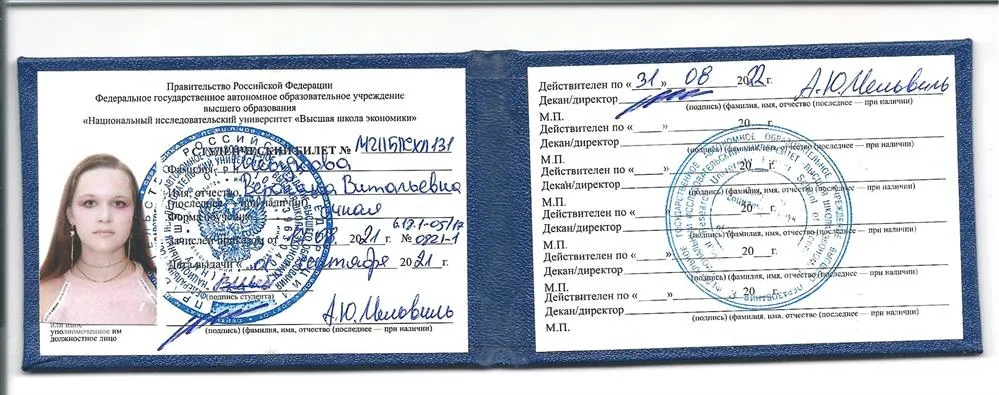 Правительство Российской Федерации
Федеральное государственное автономное образовательное учреждение
высшего образования
«Национальный исследовательский университет «Высшая школа экономики»
СТУДЕНЧЕСКИЙ БИЛЕТ №
Фамилия
Имя, отчество Вероника Витальевна
(последнее — при наличии)
Форма обучения очная
Зачислен приказом от 08 2021 г. №
Дата выдачи « » сентября 2021 г.
(подпись студента)
А.Ю.Мельвиль
уполномоченное им
должностное лицо
(подпись) (фамилия, имя, отчество (последнее — при наличии)
Действителен по « 31 » 08 2022 г.
Декан/директор А.Ю.Мельвиль
(подпись) (фамилия, имя, отчество (последнее — при наличии)
М.П.
Действителен по « » 20 г.
Декан/директор
(подпись) (фамилия, имя, отчество (последнее — при наличии)
М.П.
Действителен по « » 20 г.
Декан/директор
(подпись) (фамилия, имя, отчество (последнее — при наличии)
М.П.
Действителен по « » 20 г.
Декан/директор
(подпись) (фамилия, имя, отчество (последнее — при наличии)
М.П.
Действителен по « » 20 г.
Декан/директор
(подпись) (фамилия, имя, отчество (последнее — при наличии)
М.П.
Действителен по « » 20 г.
Декан/директор
(подпись) (фамилия, имя, отчество (последнее — при наличии)
М.П.